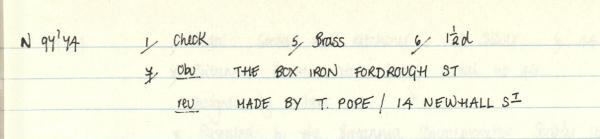 N 94'74 1/ Check 5/ Brass 6/ 1½d
7/ Obv THE BOX IRON FORDROUGH ST
rev MADE BY T. POPE / 14 NEWHALL ST